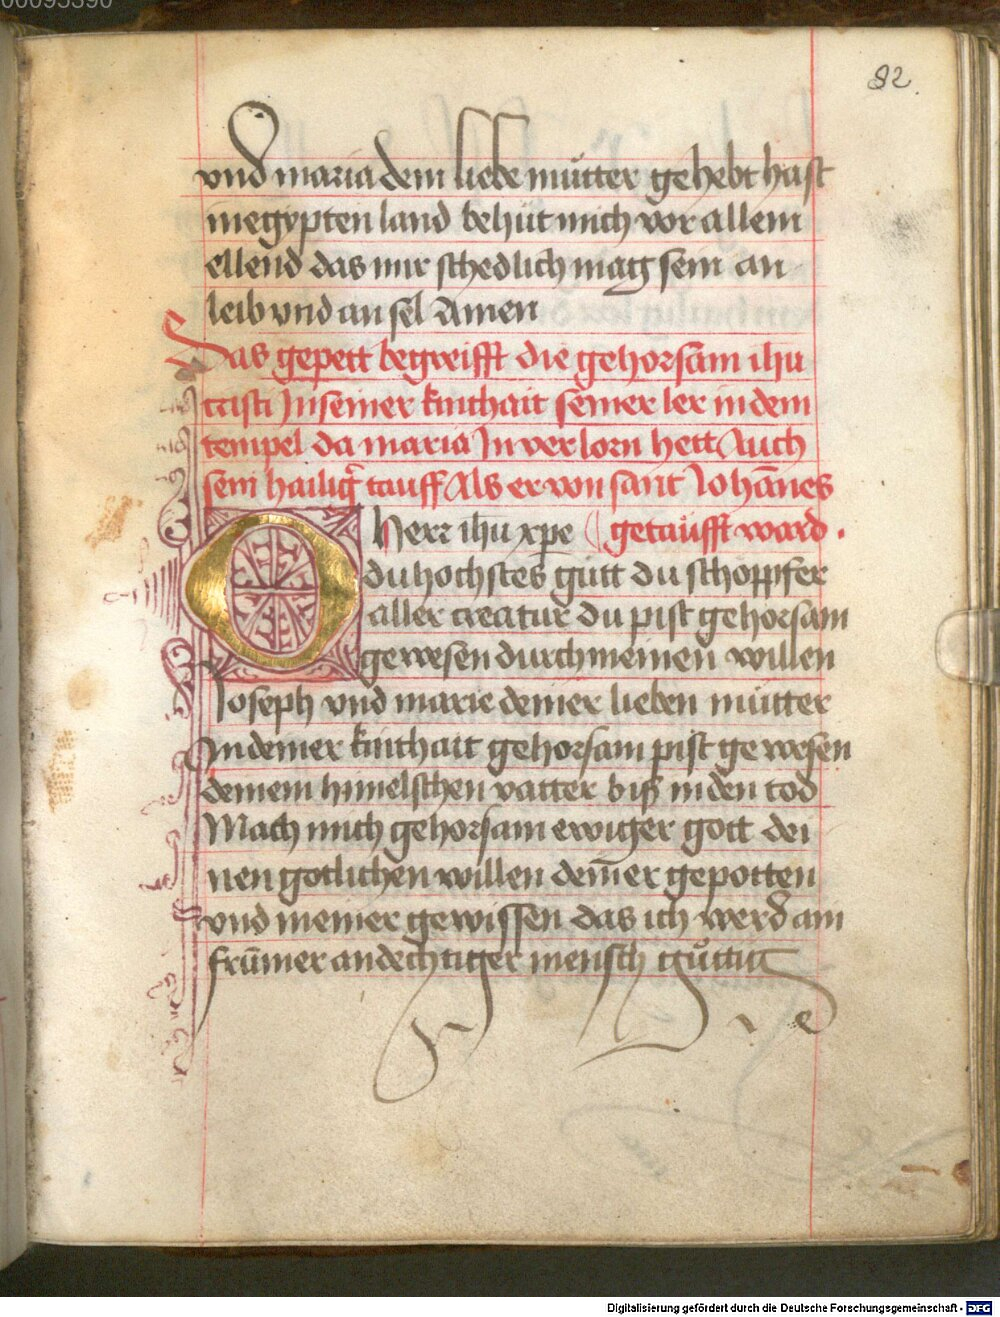 00095390
82.
vnd maria dem liebe muͤtter gehebt hast
inegypten land behüt mich vor allem
ellend das mir schedlich mag sein an
leib vnd an sel Amen
Das gepett begreifft die gehorsam ihu
cristi In seiner kinthait seiner ler in dem
tempel da maria In verlorn hett Auch
sein hailig̃ tauff Als er von sant Johānes
Herr ihu xp̄e getaùfft ward.
O du hochstes gùtt du schöpffer
aller creatur du pist gehorsam
gewesen durch meinen willen
Joseph vnd marie deiner lieben mütter
In deiner kinthait gehorsam pist gewesen
deinem himelschen vatter biß in den tod
Mach mich gehorsam ewiger gott dei
nen gotlichen willen deīner gepotten
vnd meiner gewissen das ich werd ain
frūmer andechtiger mensch gůttig
Digitalisierung gefördert durch die Deutsche Forschungsgemeinschaft - DFG